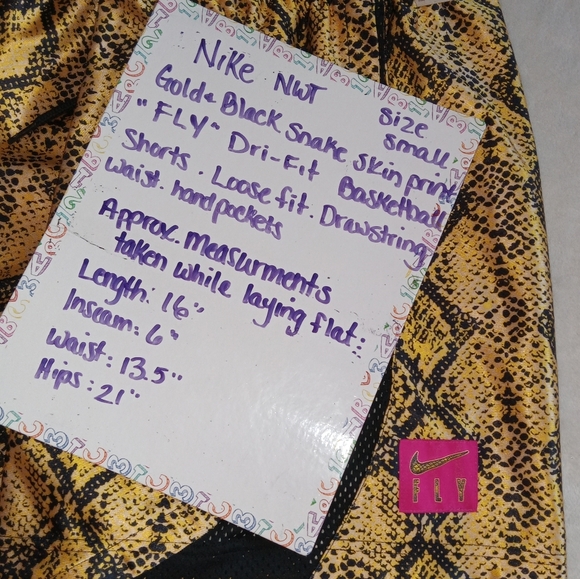 Nike NWT size small
Gold & Black Snake skin print
"FLY" Dri-Fit Basketball
Shorts. Loose fit. Drawstring
waist. hand pockets
Approx. measurments
taken while laying flat:
Length: 16"
Inseam: 6"
Waist: 13.5"
Hips: 21"
FLY